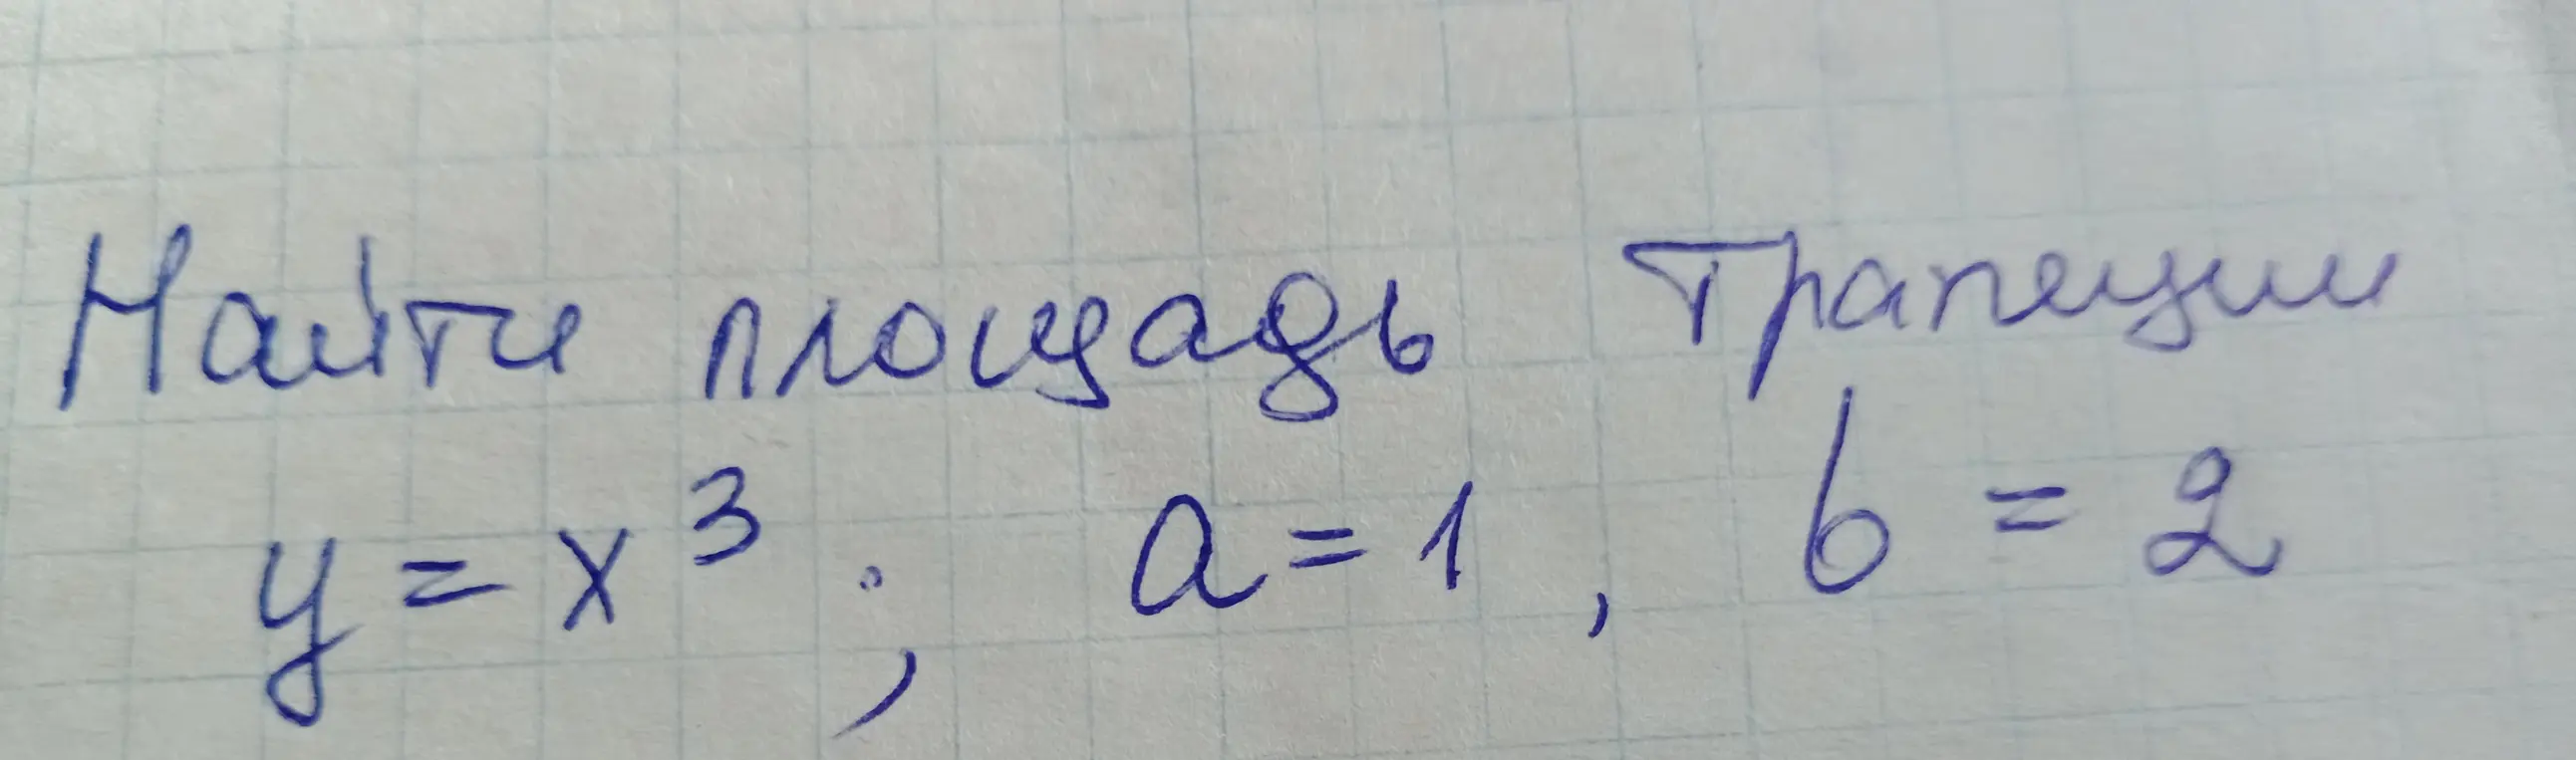 Найти площадь трапеции
y = x³; a = 1, b = 2